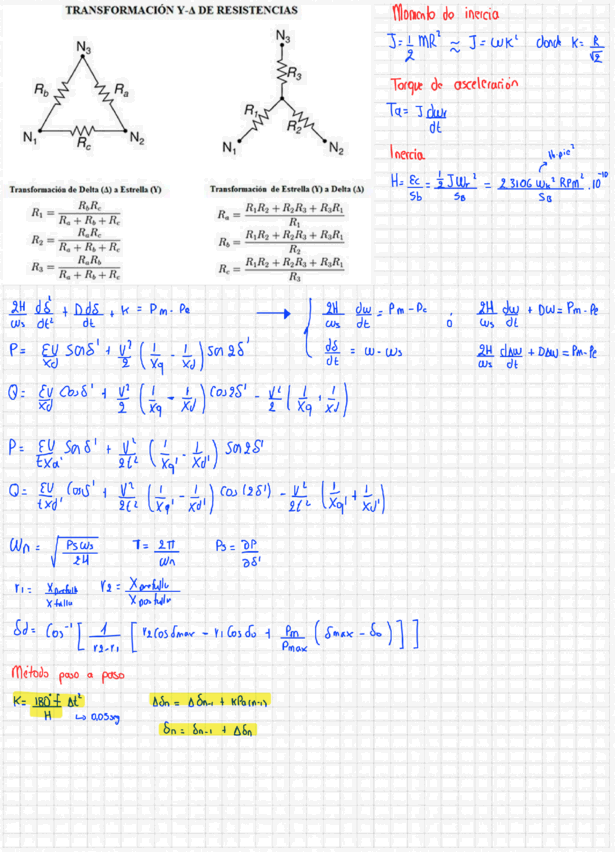 TRANSFORMACIÓN Y-Δ DE RESISTENCIAS
N3
Rb
Ra
N1
Rc
N2
N3
R3
R1
R2
N1
N2
Transformación de Delta (Δ) a Estrella (Y)
R1 = RbRc / (Ra + Rb + Rc)
R2 = RaRc / (Ra + Rb + Rc)
R3 = RaRb / (Ra + Rb + Rc)
Transformación de Estrella (Y) a Delta (Δ)
Ra = (R1R2 + R2R3 + R3R1) / R1
Rb = (R1R2 + R2R3 + R3R1) / R2
Rc = (R1R2 + R2R3 + R3R1) / R3
Momento do inercia
J = 1/2 MR² ≈ J = ωK² donde K = R/√2
Torque de asceleración
Ta = J dωr/dt
Inercia
lb-pie²
H = Ec/Sb = 1/2 Jωr² / SB = 2.3106 ωk² RPM² · 10⁻¹⁰ / SB
2H/ωs dδ²/dt² + Ddδ/dt + K = Pm - Pe → { 2H/ωs dω/dt = Pm - Pe ó 2H/ωs dω/dt + Dω = Pm - Pe
dδ/dt = ω - ωs 2H/ωs dΔω/dt + DΔω = Pm - Pe
P = EV/Xd Senδ' + V²/2 (1/Xq - 1/Xd) Sen 2δ'
Q = EV/Xd Cosδ' + V²/2 (1/Xq - 1/Xd) Cos 2δ' - V²/2 (1/Xq + 1/Xd)
P = EV/tXd' Sen δ' + V²/2t² (1/Xq' - 1/Xd') Sen 2δ'
Q = EV/tXd' Cosδ' + V²/2t² (1/Xq' - 1/Xd') Cos (2δ') - V²/2t² (1/Xq' + 1/Xd')
ωn = √(Psωs / 2H) T = 2π/ωn Ps = ∂P/∂δ'
r1 = Xprefalla / Xfalla r2 = Xprefalla / Xposfalla
δd = Cos⁻¹ [ 1/(r2-r1) [ r2 Cosδmax - r1 Cosδ0 + Pm/Pmax (δmax - δ0) ] ]
Método paso a paso
K = 180° f/H Δt² ↳ 0,05seg
Δδn = Δδn-1 + KPa(n-1)
δn = δn-1 + Δδn